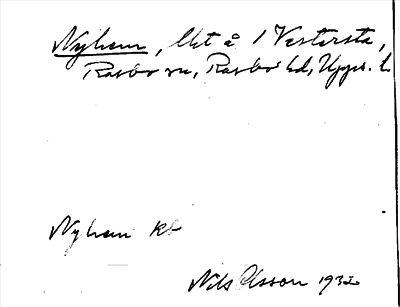 Nyhem, lht å 1 Vestersta,
Rasbo sn, Rasbo hd, Upps. l.
Nyhem
Nils Olsson 1932